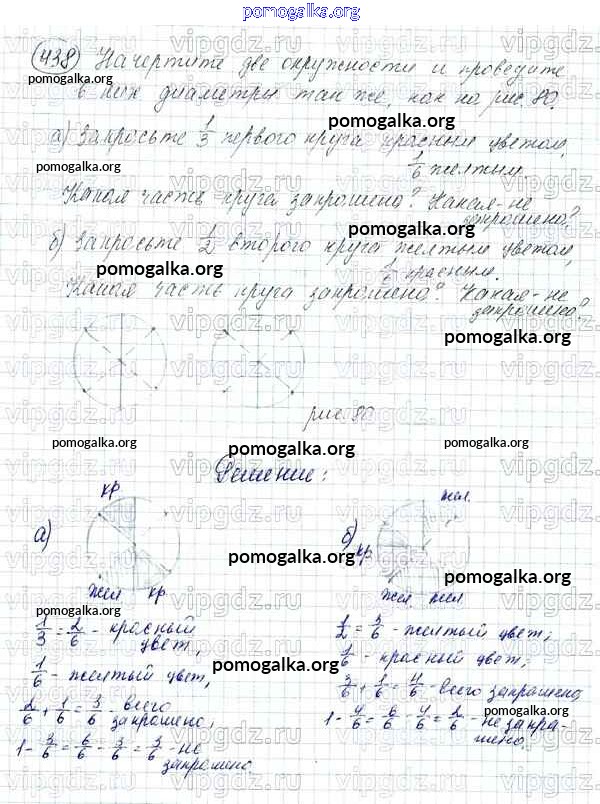 pomogalka.org
438 Начертите две окружности и проведите
в них диаметры так же, как на рис. 80.
а) Закрасьте 1/3 первого круга красным цветом,
1/6 желтым.
Какая часть круга закрашена? Какая - не
закрашена?
б) Закрасьте 1/2 второго круга желтым цветом,
1/6 красным.
Какая часть круга закрашена? Какая - не
закрашена?
рис. 80
Решение:
а)
кр
жел кр
1/3 = 2/6 - красный
цвет,
1/6 - желтый цвет,
2/6 + 1/6 = 3/6 - всего
закрашено,
1 - 3/6 = 6/6 - 3/6 = 3/6 - не
закрашено.
б)
жел.
кр
жел жел
1/2 = 3/6 - желтый цвет;
1/6 - красный цвет;
3/6 + 1/6 = 4/6 - всего закрашено
1 - 4/6 = 6/6 - 4/6 = 2/6 - не закра-
шено.
pomogalka.org
vipgdz.ru